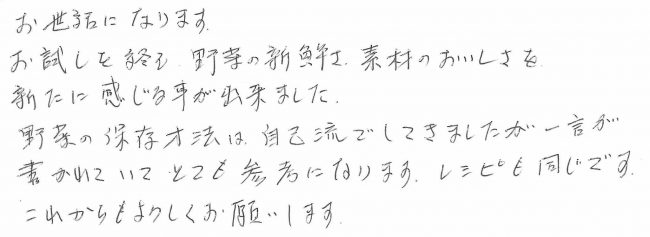 お世話になります。
お試しを終え、野菜の新鮮さ、素材のおいしさを
新たに感じる事が出来ました。
野菜の保存方法は、自己流でしてきましたが一言が
書かれていてとても参考になります。レシピも同じです。
これからもよろしくお願いします。